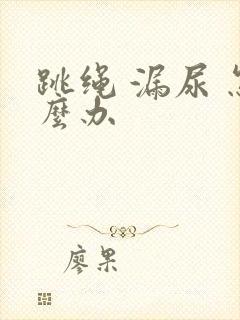 跳绳 漏尿 怎
麽办
廖果